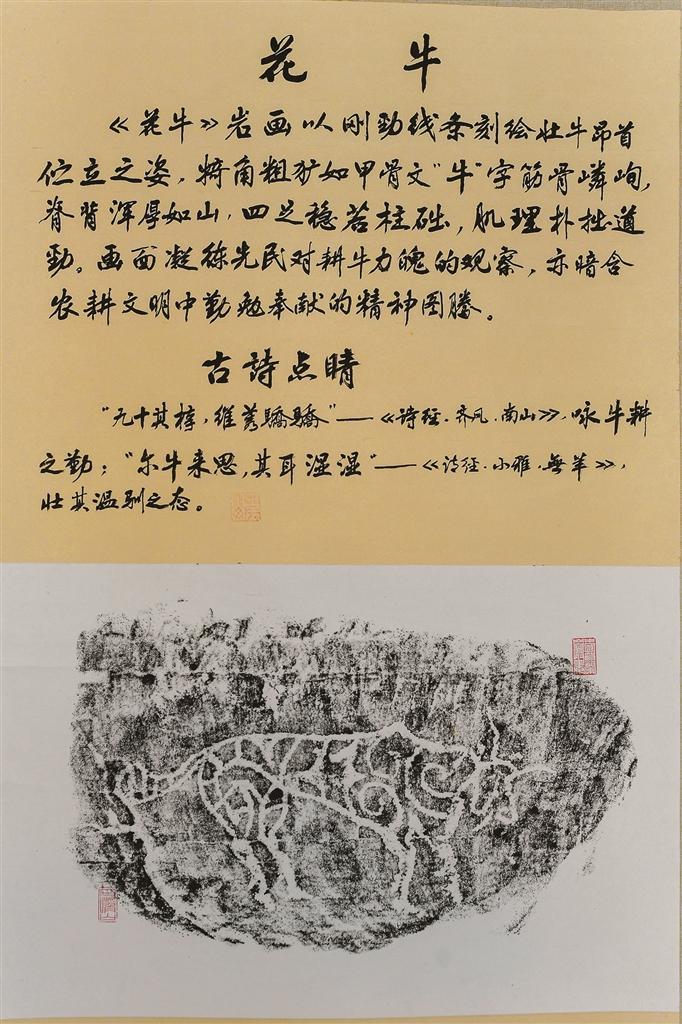 花牛
《花牛》岩画以刚劲线条刻绘壮牛昂首
伫立之姿，犄角粗犷如甲骨文"牛"字筋骨嶙峋，
脊背浑厚如山，四足稳若柱础，肌理朴拙遒
劲。画面凝练先民对耕牛力魄的观察，亦暗含
农耕文明中勤勉奉献的精神图腾。
古诗点睛
"九十其犉，维莠驕驕"——《诗经·齐风·南山》，咏牛耕
之勤；"尔牛来思，其耳湿湿"——《诗经·小雅·無羊》，
壮其温驯之态。